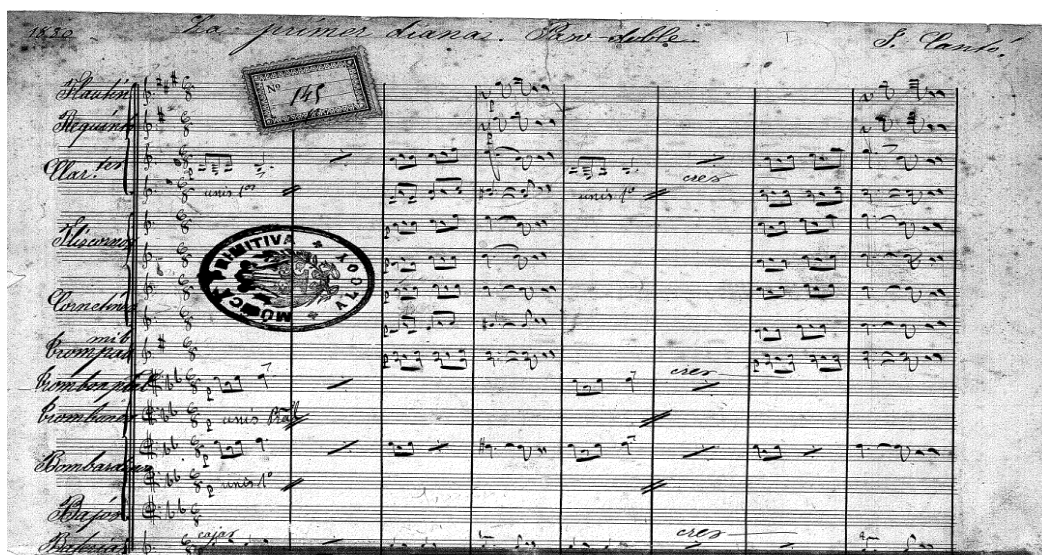 1830 La primer diana. Paso-doble. J. Cantó.
Nº 145
Flautín
Requinto
Clar.tes
unis 1os unis 1º cres
Fliscornos
MÚSICA PRIMITIVA ALCOY
Cornetines
Trompas mib
cres
Trombones
p unis
Bombardinos
p unis 1º
Bajos
Batería cajas cres